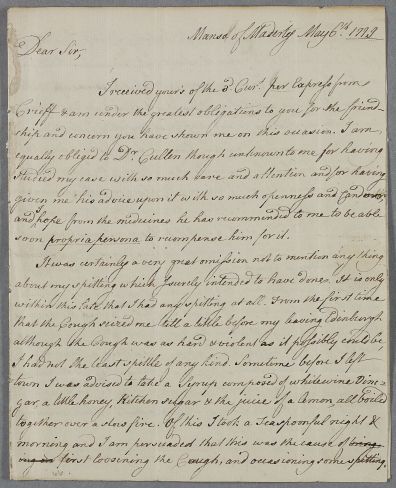 Manse of Maderty May 6th. 1779
Dear Sir,
I received yours of the 3d Curt. per Express from
Crieff & am under the greatest obligations to you for the friend-
ship and concern you have shown me on this occasion. I am
equally obliged to Dr. Cullen though unknown to me for having
studied my case with so much care and attention and for having
given me his advice upon it with so much openness and Candour
and hope from the medicines he has recommended to me to be able
soon propria persona to recompense him for it.
It was certainly a very great omission not to mention any thing
about my spitting which I surely intended to have done. It is only
within this that I had any spitting at all. From the first time
that the Cough seized me till a little before my leaving Edinburgh
although the Cough was as hard & violent as it possibly could be,
I had not the least spittle of any kind. Sometime before I left
town I was advised to take a Syrup composed of white wine Vine-
gar, a little honey, Kitchen sugar & the juice of a Lemon all boiled
together over a slow fire. Of this I took a Teaspoonful night &
morning and I am persuaded that this was the cause of bring-
ing on first loosening the Cough, and occasioning some spitting.